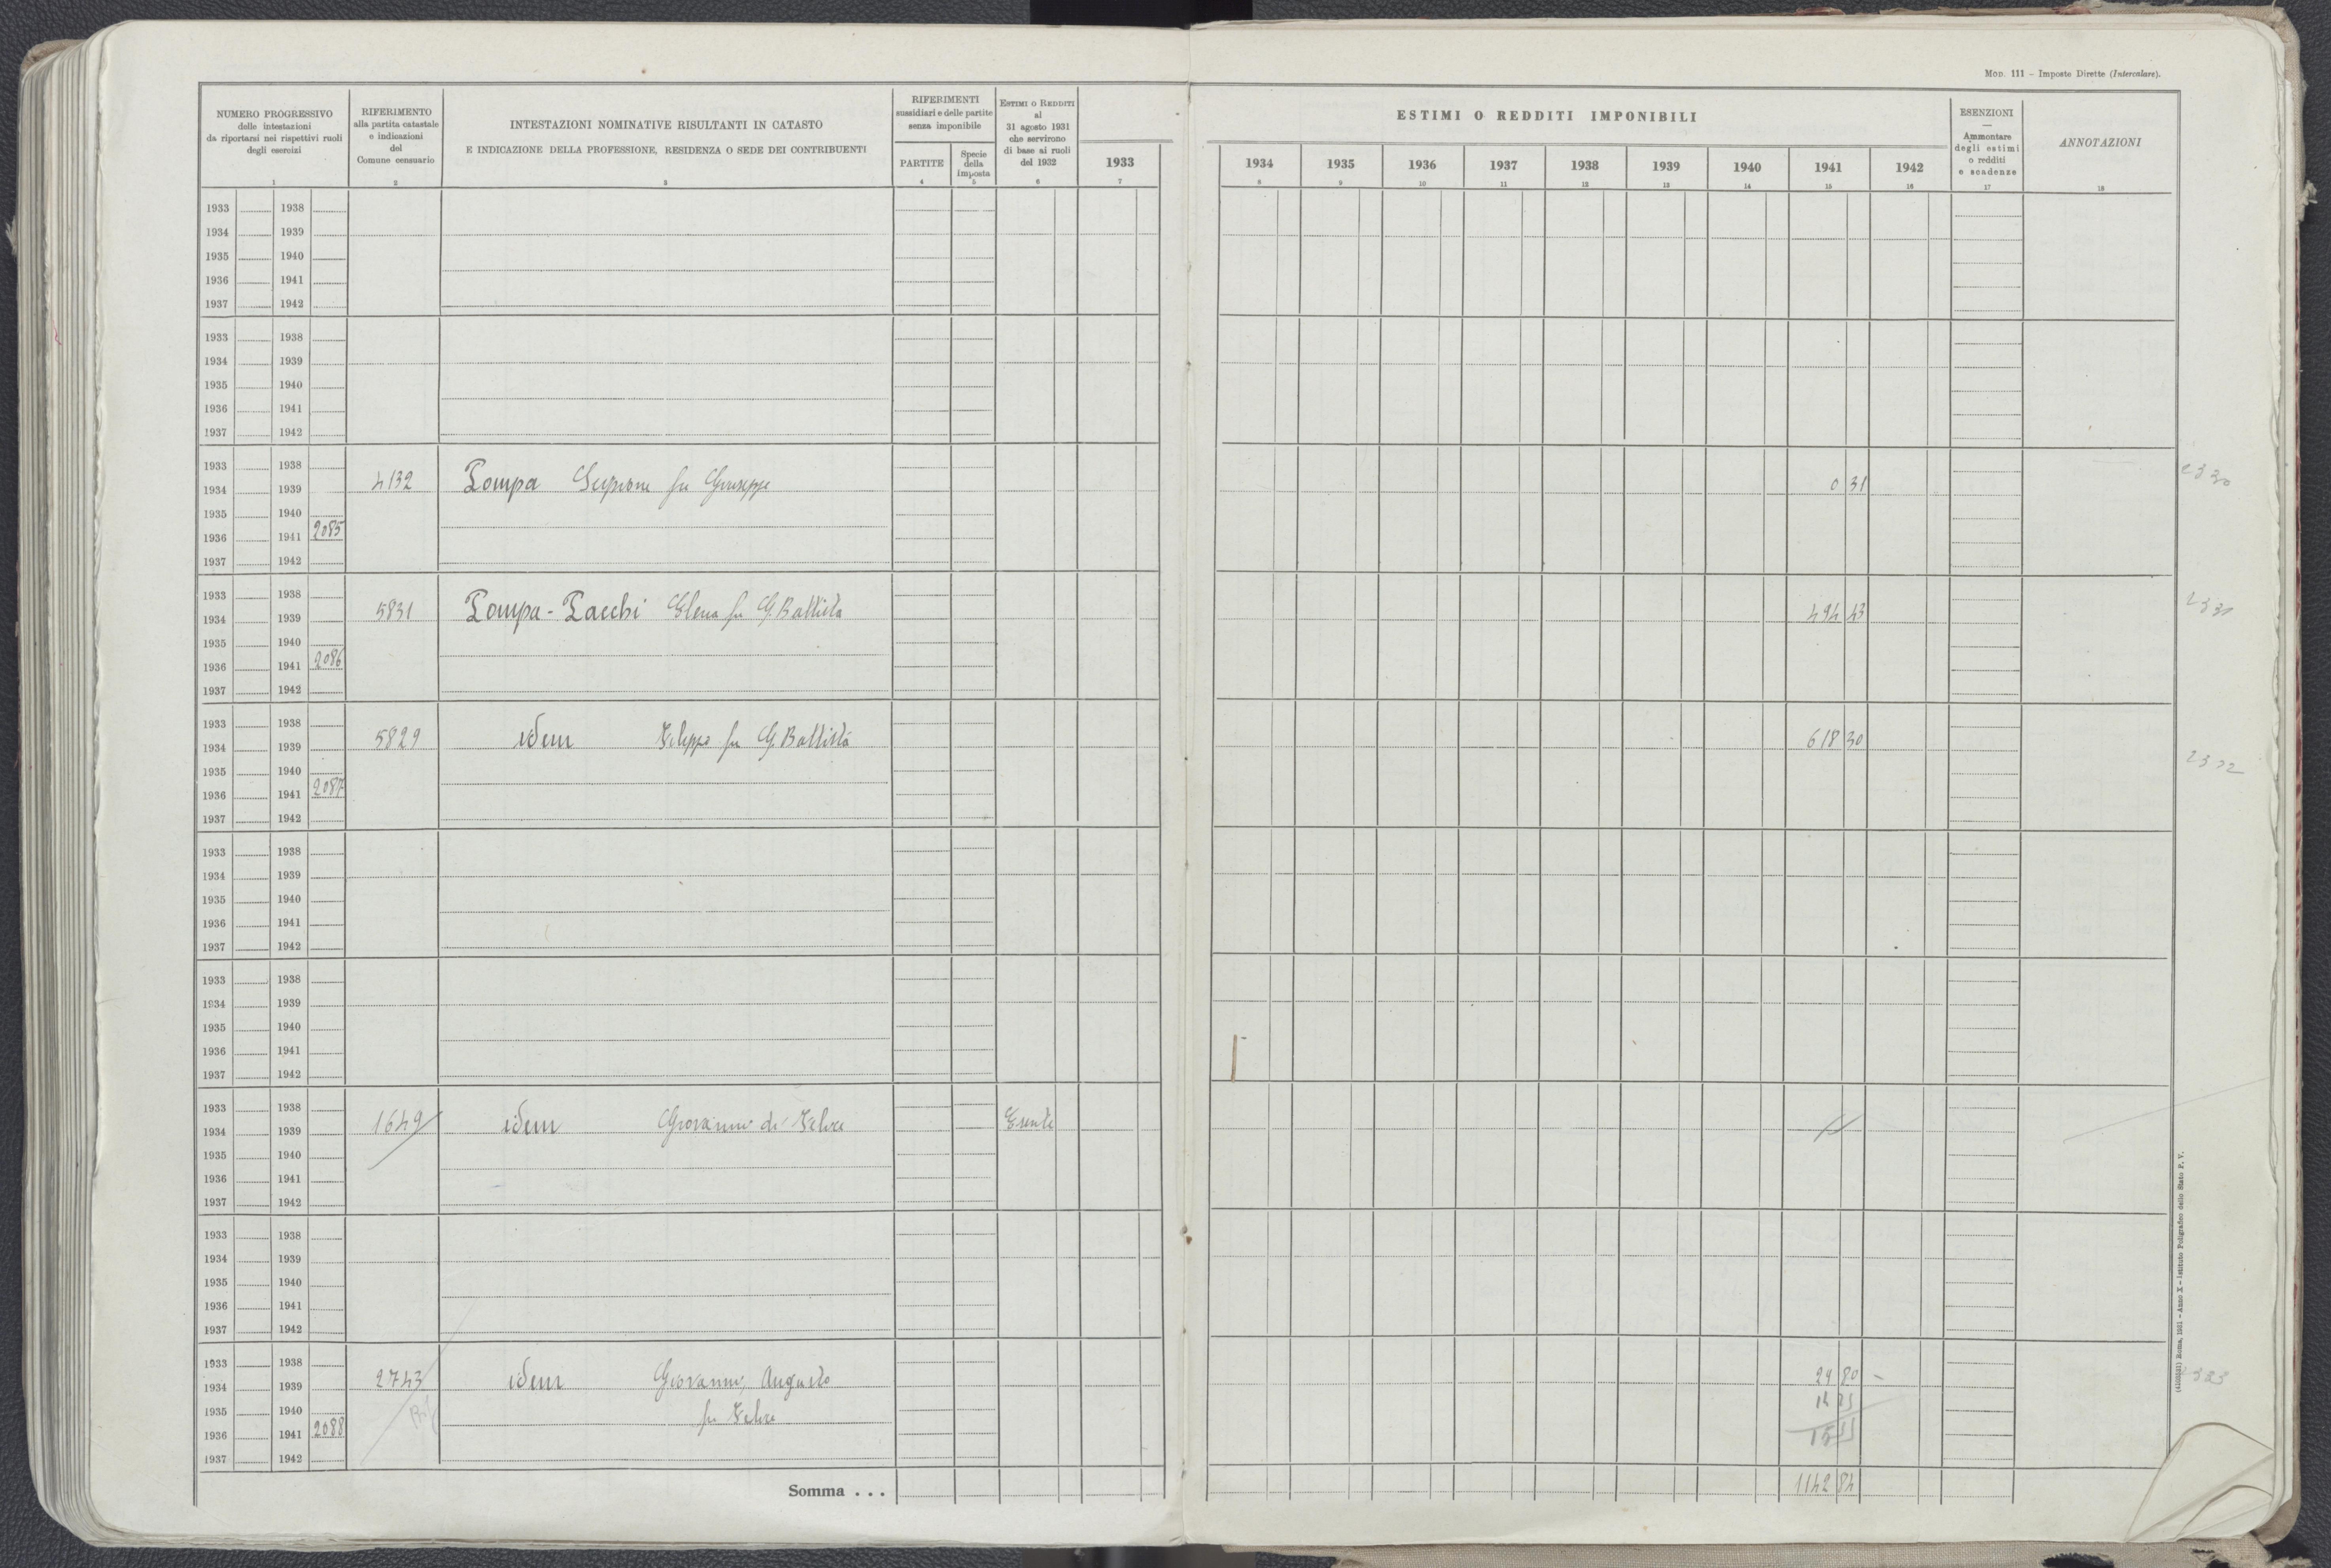 MOD. 111 – Imposte Dirette (Intercalare).
NUMERO PROGRESSIVO
delle intestazioni
da riportarsi nei rispettivi ruoli
degli esercizi
1
RIFERIMENTO
alla partita catastale
e indicazioni
del
Comune censuario
2
INTESTAZIONI NOMINATIVE RISULTANTI IN CATASTO
E INDICAZIONE DELLA PROFESSIONE, RESIDENZA O SEDE DEI CONTRIBUENTI
3
RIFERIMENTI
sussidiari e delle partite
senza imponibile
PARTITE
4
Specie
della
imposta
5
ESTIMI O REDDITI
al
31 agosto 1931
che servirono
di base ai ruoli
del 1932
6
1933
7
ESTIMI O REDDITI IMPONIBILI
1934 1935 1936 1937 1938 1939 1940 1941 1942
8 9 10 11 12 13 14 15 16
ESENZIONI
—
Ammontare
degli estimi
o redditi
e scadenze
17
ANNOTAZIONI
18
1933 1938
1934 1939
1935 1940
1936 1941
1937 1942
1933 1938
1934 1939
1935 1940
1936 1941
1937 1942
1933 1938
1934 1939 4132 Pompa Scipione fu Giuseppe 0 31 2330
1935 1940
1936 1941 2085
1937 1942
1933 1938
1934 1939 5831 Pompa-Pacchi Elena fu G. Battista 494 43 2331
1935 1940
1936 1941 2086
1937 1942
1933 1938
1934 1939 5829 idem Filippo fu G. Battista 618 30
1935 1940 2332
1936 1941 2087
1937 1942
1933 1938
1934 1939
1935 1940
1936 1941
1937 1942
1933 1938
1934 1939
1935 1940
1936 1941
1937 1942
1933 1938
1934 1939 1649 idem Giovanni di Felice Esente
1935 1940
1936 1941
1937 1942
1933 1938
1934 1939
1935 1940
1936 1941
1937 1942
1933 1938
1934 1939 2743 idem Giovanni, Augusto 29 80 2333
1935 1940 fu Felice
1936 1941 2088
1937 1942
Somma . . . 1142 84
Roma, 1931 – Anno X – Istituto Poligrafico dello Stato P. V.